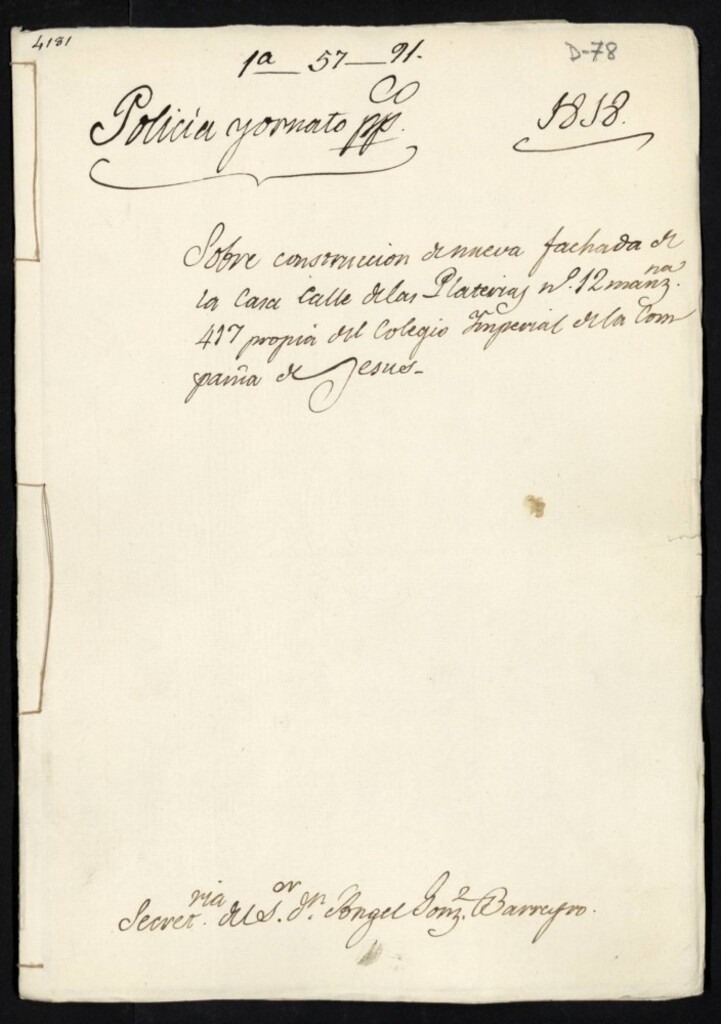 4181
1a 57 91.
D-78
Policía y ornato ppco.
1818.
Sobre construccion de nueva fachada de
la Casa Calle de las Platerias nº. 12 manzna.
417 propia del Colegio Imperial de la Com
pañia de Jesus-
Secretria. del Sor. Dn. Angel Gonzz. Barreyro.